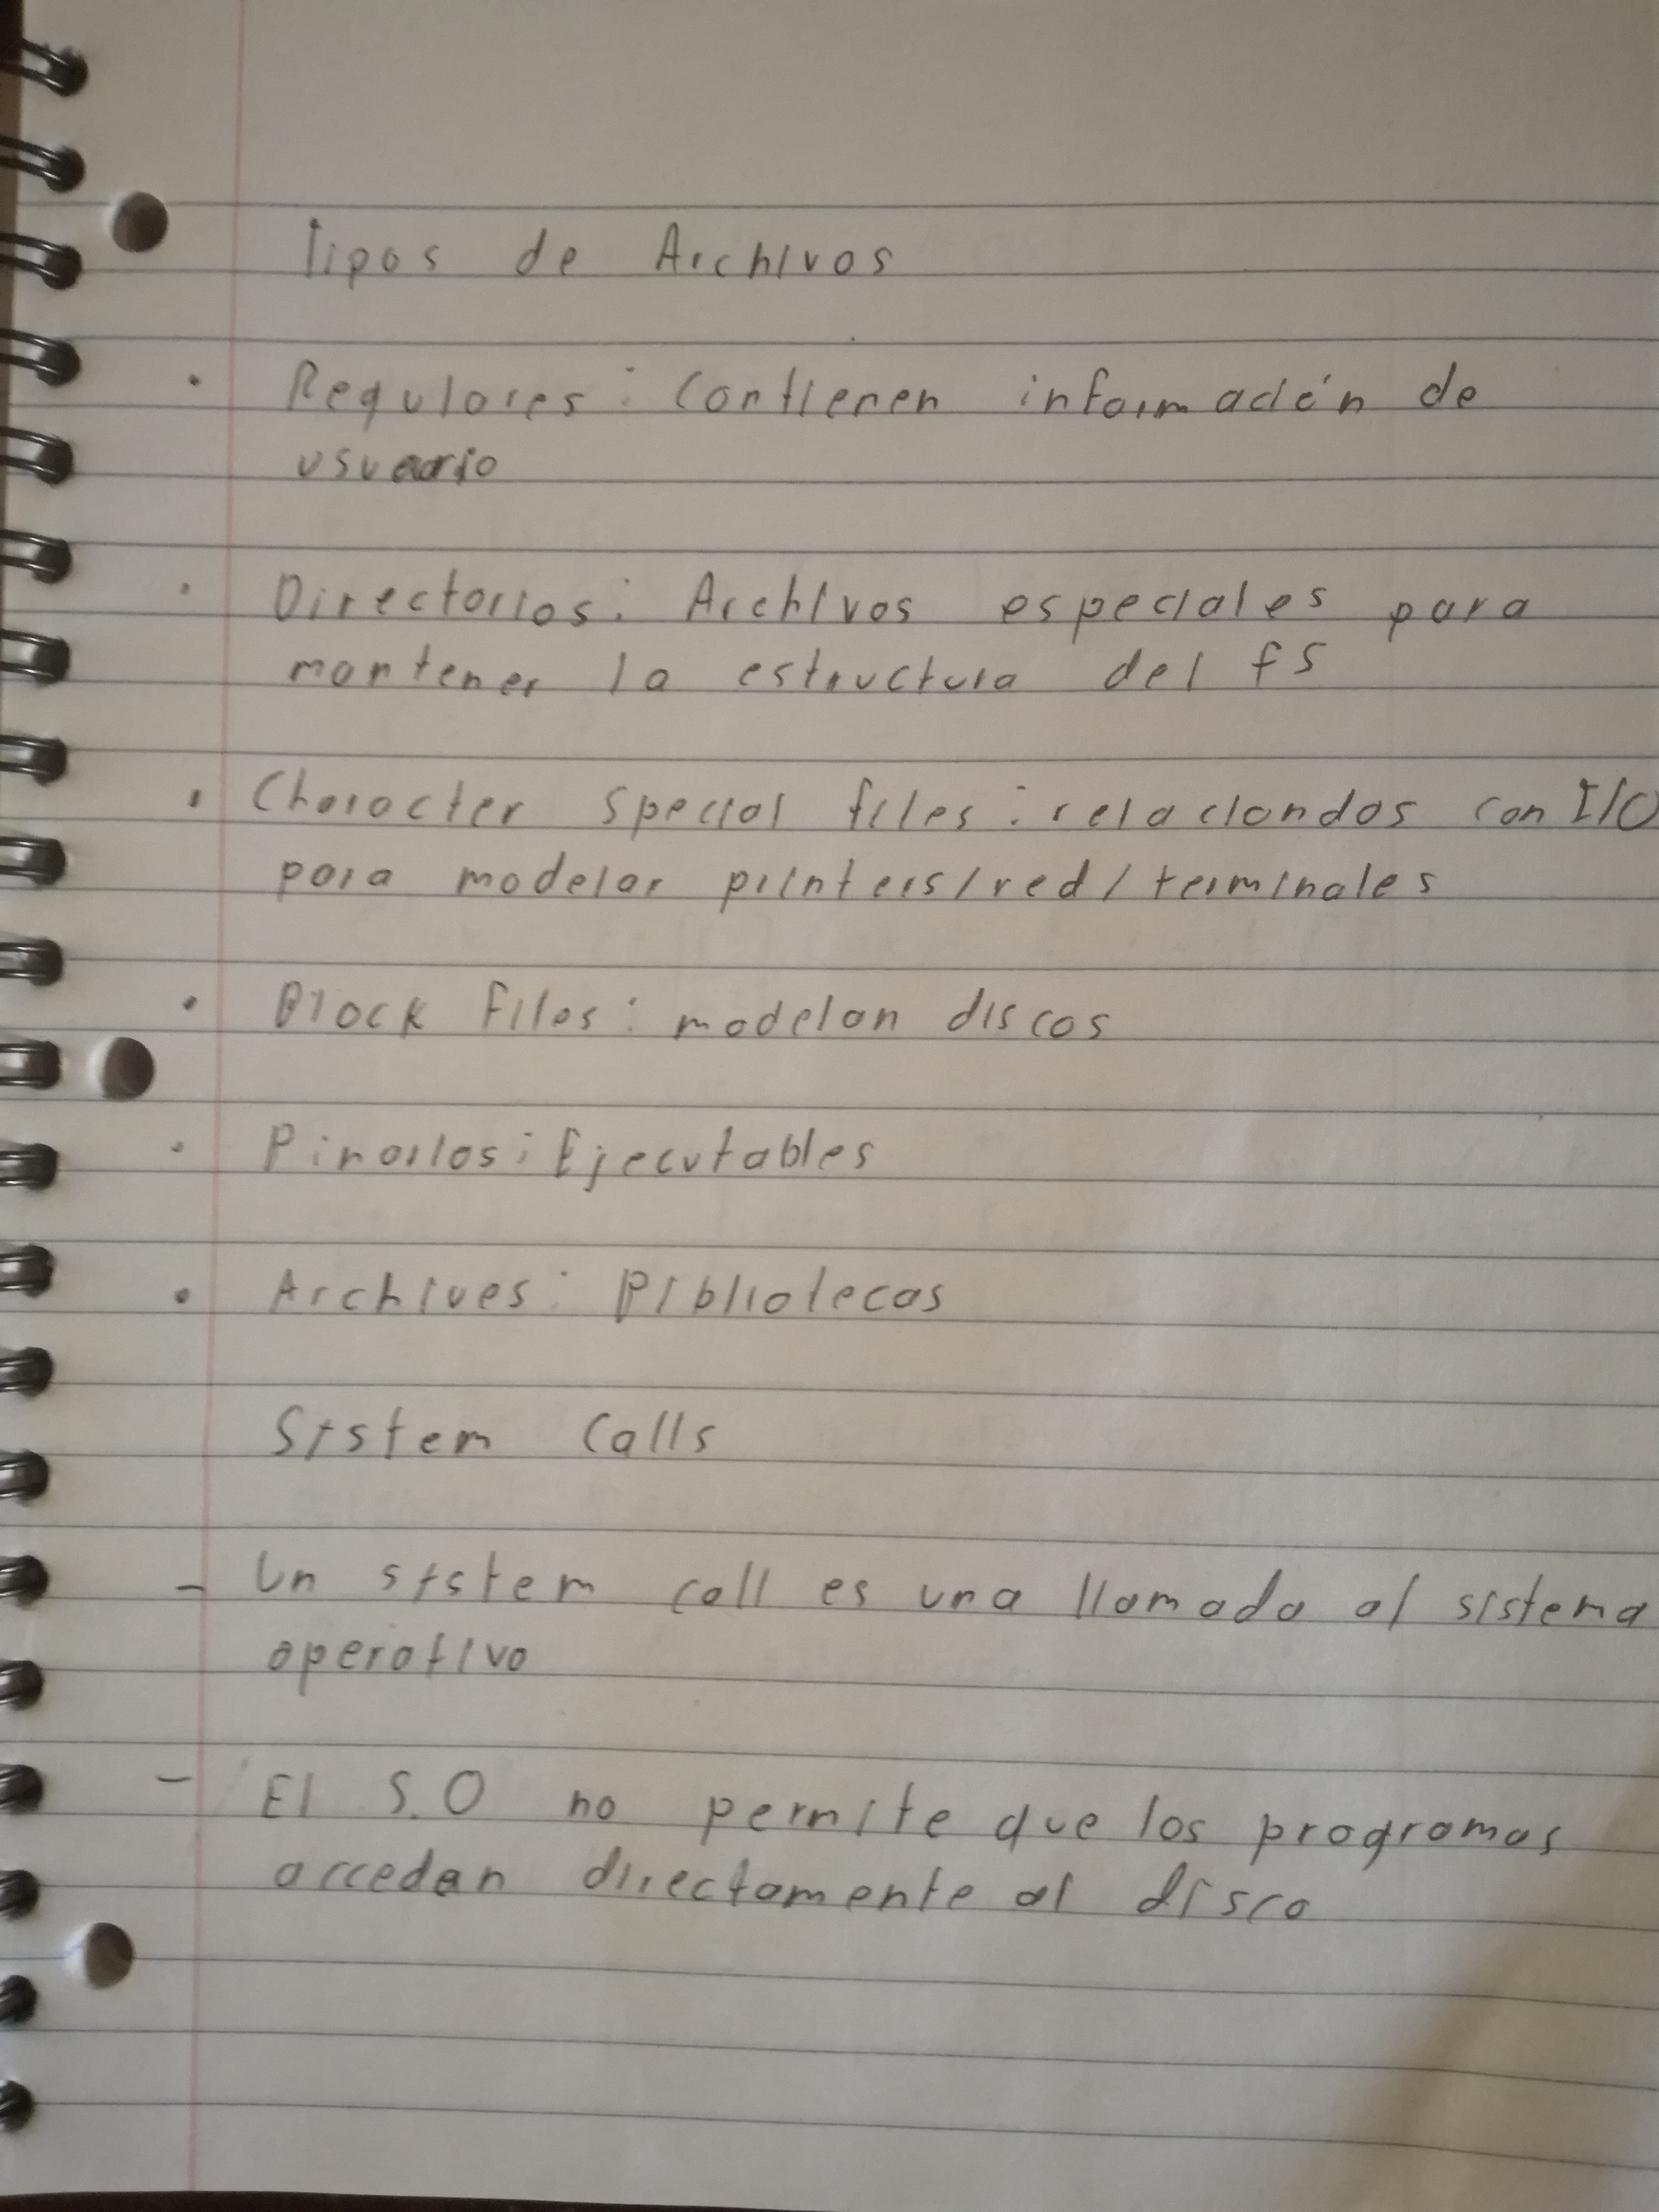 Tipos de Archivos
• Regulares: Contienen información de
usuario
• Directorios: Archivos especiales para
mantener la estructura del fs
• Character Special files: relaciondos con I/O
para modelar printers/red/terminales
• Block Files: modelan discos
• Binarios: Ejecutables
• Archives: Bibliotecas
System Calls
- Un system call es una llamada al sistema
operativo
- El S.O no permite que los programas
accedan directamente al disco